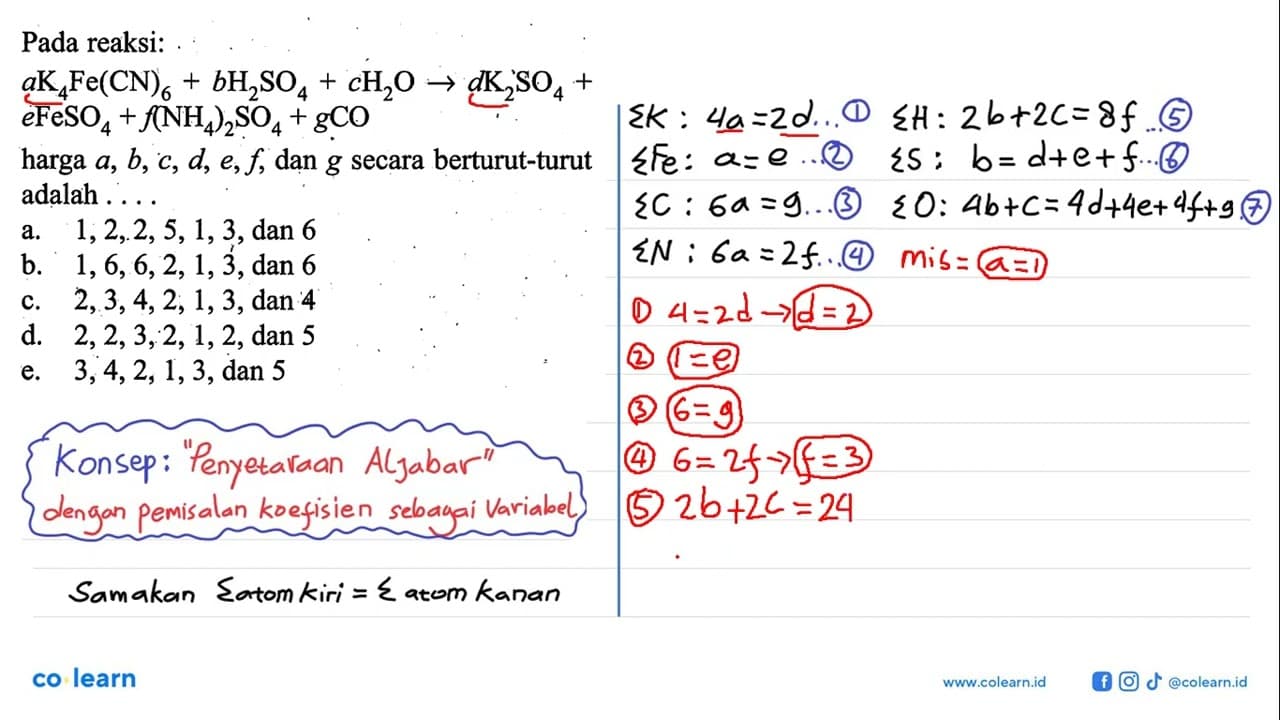 Pada reaksi:
aK₄Fe(CN)₆ + bH₂SO₄ + cH₂O → dK₂SO₄ +
eFeSO₄ + f(NH₄)₂SO₄ + gCO
harga a, b, c, d, e, f, dan g secara berturut-turut
adalah . . . .
a. 1, 2, 2, 5, 1, 3, dan 6
b. 1, 6, 6, 2, 1, 3, dan 6
c. 2, 3, 4, 2, 1, 3, dan 4
d. 2, 2, 3, 2, 1, 2, dan 5
e. 3, 4, 2, 1, 3, dan 5
Konsep: "Penyetaraan Aljabar"
dengan pemisalan koefisien sebagai Variabel
Samakan Σatom kiri = Σ atom kanan
ΣK : 4a = 2d...①
ΣFe: a = e ...②
ΣC : 6a = g...③
ΣN : 6a = 2f...④
ΣH: 2b+2c = 8f ...⑤
ΣS: b = d+e+f...⑥
ΣO: 4b+c = 4d+4e+4f+g ⑦
mis = a=1
① 4 = 2d → d = 2
② 1 = e
③ 6 = g
④ 6 = 2f → f = 3
⑤ 2b+2c = 24
co learn
www.colearn.id
@colearn.id